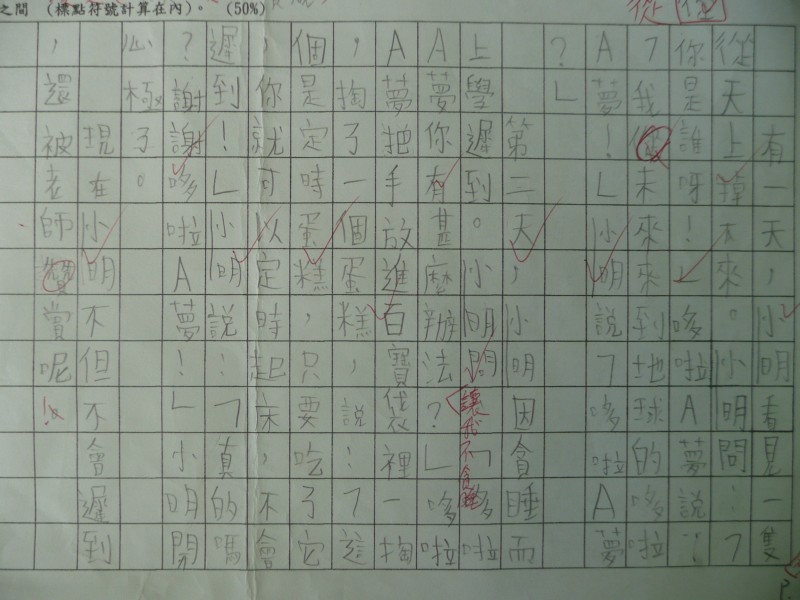 之間 (標點符號計算在內)。 (50%)
有一天，小明看見一隻
從天上掉下來。小明問：「
你是誰呀！」哆啦A夢說：
「我從未來來到地球的哆啦
A夢！」小明說「哆啦A夢
？」
第二天，小明因貪睡而
上學遲到。小明問「哆啦
讓我不貪睡
A夢你有甚麼辦法？」哆啦
A夢把手放進百寶袋裡一掏
，掏了一個蛋糕，說：「這
個是定時蛋糕，只要吃了它
，你就可以定時起床，不會
遲到！」小明說：「真的嗎
？謝謝哆啦A夢！」小明開
心極了。
現在小明不但不會遲到
，還被老師獎賞呢！